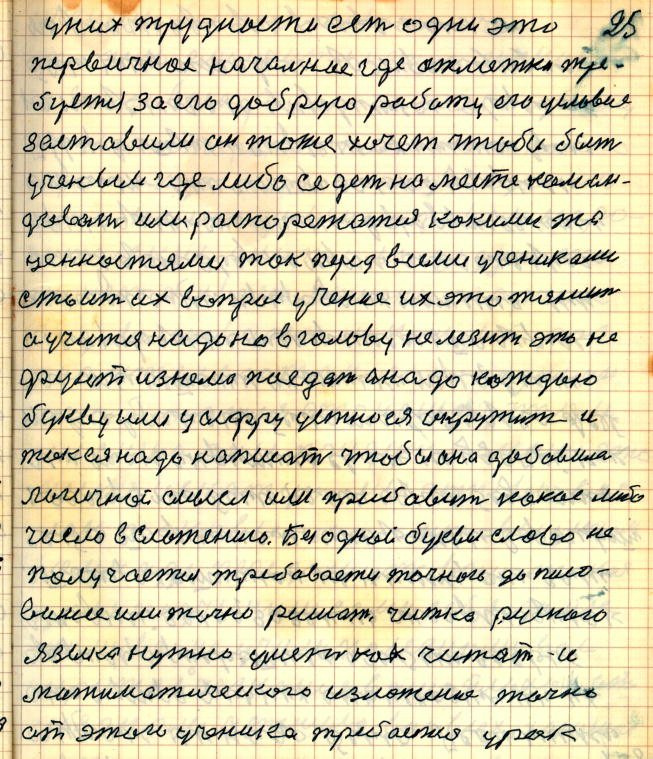 у них трудности ест одни это 25
первичное началное где отметки тре-
буется за его добрую работу его условие
заставили он тоже хочет чтобы быт
ученым где либо седет на месте коман-
доват или распорежатся кокими то
ценностями ток перед всеми учениками
стоит их вопрос учение их это тянит
а учится надо но в голову не лезит это не
фрукт из нема поедат а надо каждою
букву или цыфру устно ея окружит и
ток ея надо написат чтобы она добавила
логичной смысл или прибавит какое либо
число в сложению. Без одной буквы слово не
получается требоваети точного до писо-
вание или точно ришат. читка руского
языка нужно уметь как читат и
матиматического изложение точно
от этого ученика требается урок